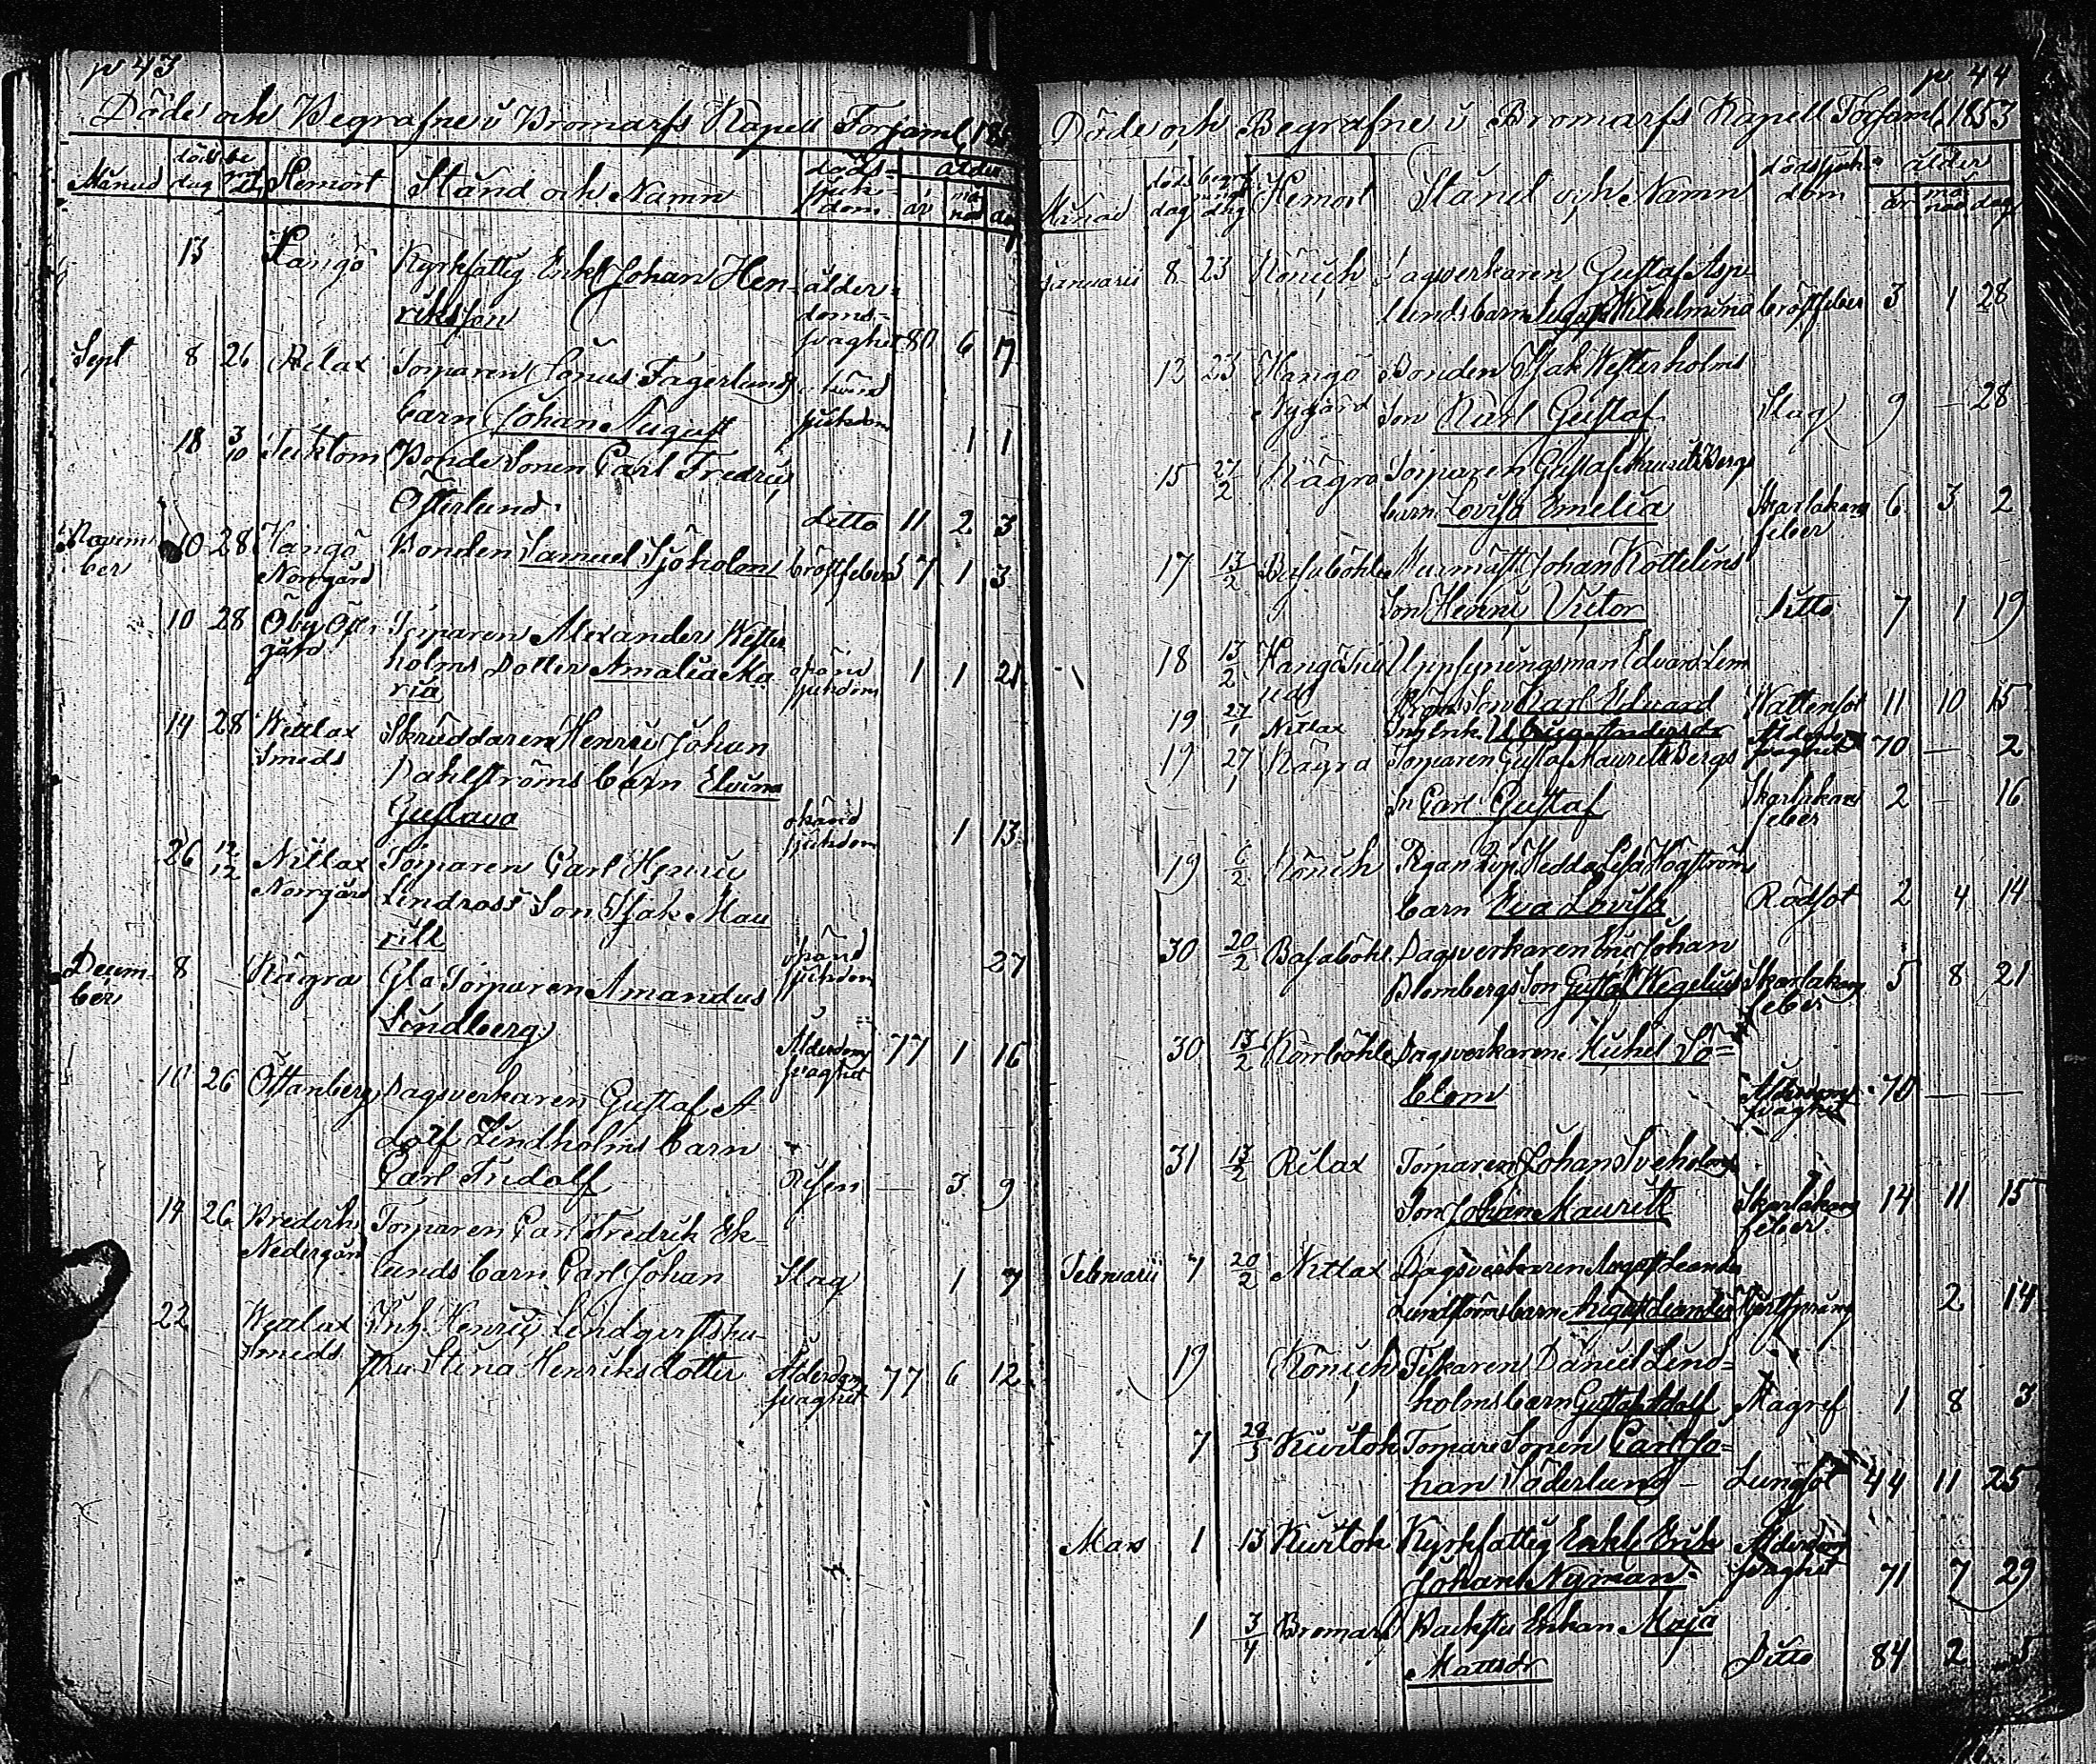 p 43
Döde och Begrafne i Bromarfs Kapell Forsaml. 185
Månad döds dag Hemort Stånd och Namn döds- sjuk- dom ålder år må nad dag
13 Hangö Kyrkfattig Enkl Johan Hen- ålder-
riksson doms-
svaghet 80 6 17
Sept 8 26 Rilax Torparen Fagerlunds okänd
barn Johan August sjukdom 1 1
18 3/10 Tecktom Bonde Sonen Carl Fredric
Österlund ditto 11 2 3
Novem- 10 28 Hangö Bonden Samuel Sjöholm bröstfeber 7 1 3
ber Norrgård
10 28 Öby Torparen Alexander Wester
gård holms Dotter Amalia Ma okänd 1 1 21
ria sjukdom
14 28 Wettlax Skräddaren Henric Johan
Smeds Dahlströms barn Elvina
Gustava okänd sjukdom 1 13
26 12/12 Nitlax Torparen Carl Henric
Norrgård Lindroos Son Isak Mau
ritz okänd sjukdom 27
Decem- 8 Kägra Gla Torparen Amandus
ber Lindberg Ålderdoms svaghet 77 1 16
10 26 Östanberg Dagsverkaren Gustaf A-
dolf Lindholms barn
Carl Fridolf Risen 3 9
14 26 Torparen Carl Fredrik Ek-
Nedergård lunds barn Carl Johan Slag 1 7
22 Wettlax Inh Henric
Smeds Stina Henriksdotter Ålderdoms svaghet 77 6 12
p 44
Döde och Begrafne i Bromarfs Kapell Forsaml. 1853
Månad döds dag begrafnings dag Hemort Stånd och Namn dödssjuk- dom ålder år må- nad dag
Januarii 8 23 Könich Dagsverkaren Gustaf Asp-
lunds barn August Wilhelmina bröstfeber 3 1 28
12 23 Hangö Bonden Isak Westerholms
Nygård Son Karl Gustaf Slag 9 — 28
15 27/2 Kägra Torparen Gustaf Mauritz Bergs
barn Lovisa Emelia Skarlakans 6 3 2
feber
17 13/2 Basaböhle Johan Kottelins
Son Henric Victor Ditto 7 1 19
18 13/2 Uppsyningsman Edvard
Son Karl Edvard Wattensot 11 10 15
19 27/1 Nitlax Ålderdoms svaghet 70 — 2
19 27/1 Kägra Torparen Gustaf Mauritz Bergs
Sn Carl Gustaf Skarlakans feber 2 — 16
19 6/2 Könich Pigan Hedda Lisa Högström
barn Eva Lovisa Rödsot 2 4 14
30 20/2 Basaböhle Dagsverkaren Eric Johan
Blombergs Son Gustaf Wegelius Skarlakans 5 8 21
feber
30 13/2 Korrböhle Dagsverkaren Michel Sö-
blom Ålderdoms svaghet 70 — —
31 13/2 Rilax Torparen Johan Sveholms
Son Johan Mauritz Skarlakans 14 11 15
feber
Februarii 7 20/2 Nitlax Dagsverkaren August Leander
Lundströms barn August Leander 2 14
19 Könich Fiskaren Daniel Lind-
holms barn Gustaf Adolf Magref 1 8 3
7 28/3 Kuitok Torpare Sonen Carl Jo-
han Söderlund Lungsot 44 11 25
Mars 1 13 Kuitok Kyrkfattig Enkl Erik Ålderdoms
Johan Nyman svaghet 71 7 29
1 3/4 Bromarf Backstu Enkan Maja
Mattsdr Ditto 84 2 5